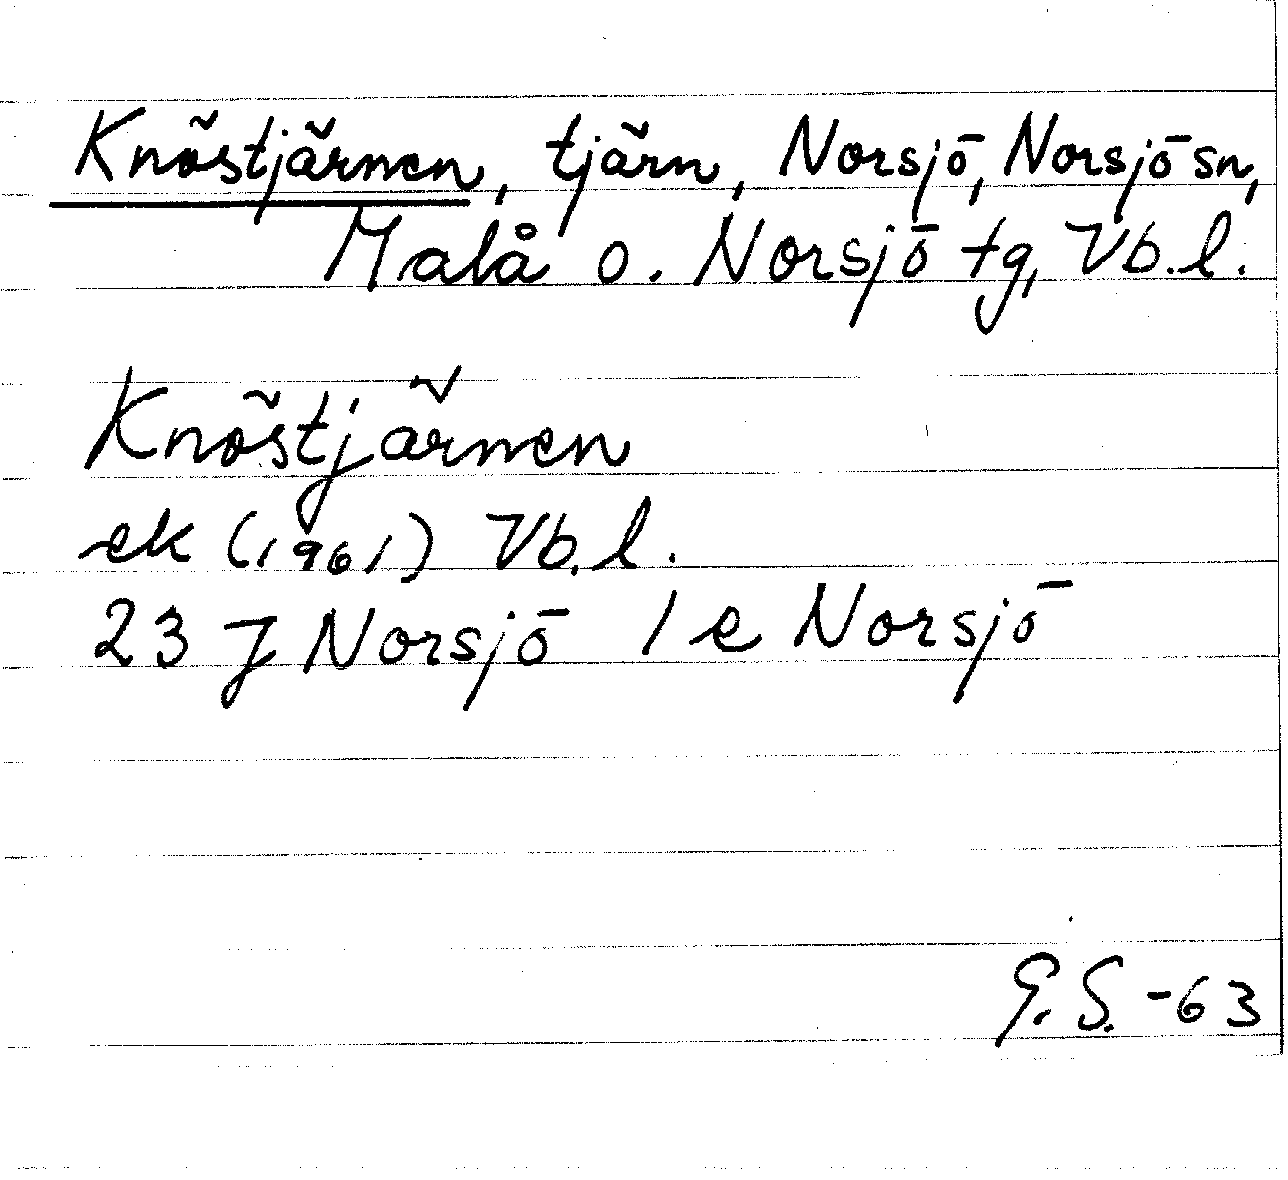 Knöstjärnen, tjärn, Norsjö, Norsjö sn,
Malå o. Norsjö tg, Vb.l.
Knöstjärnen
ek (1961) Vb.l.
23 J Norsjö 1 e Norsjö
G.S. -63